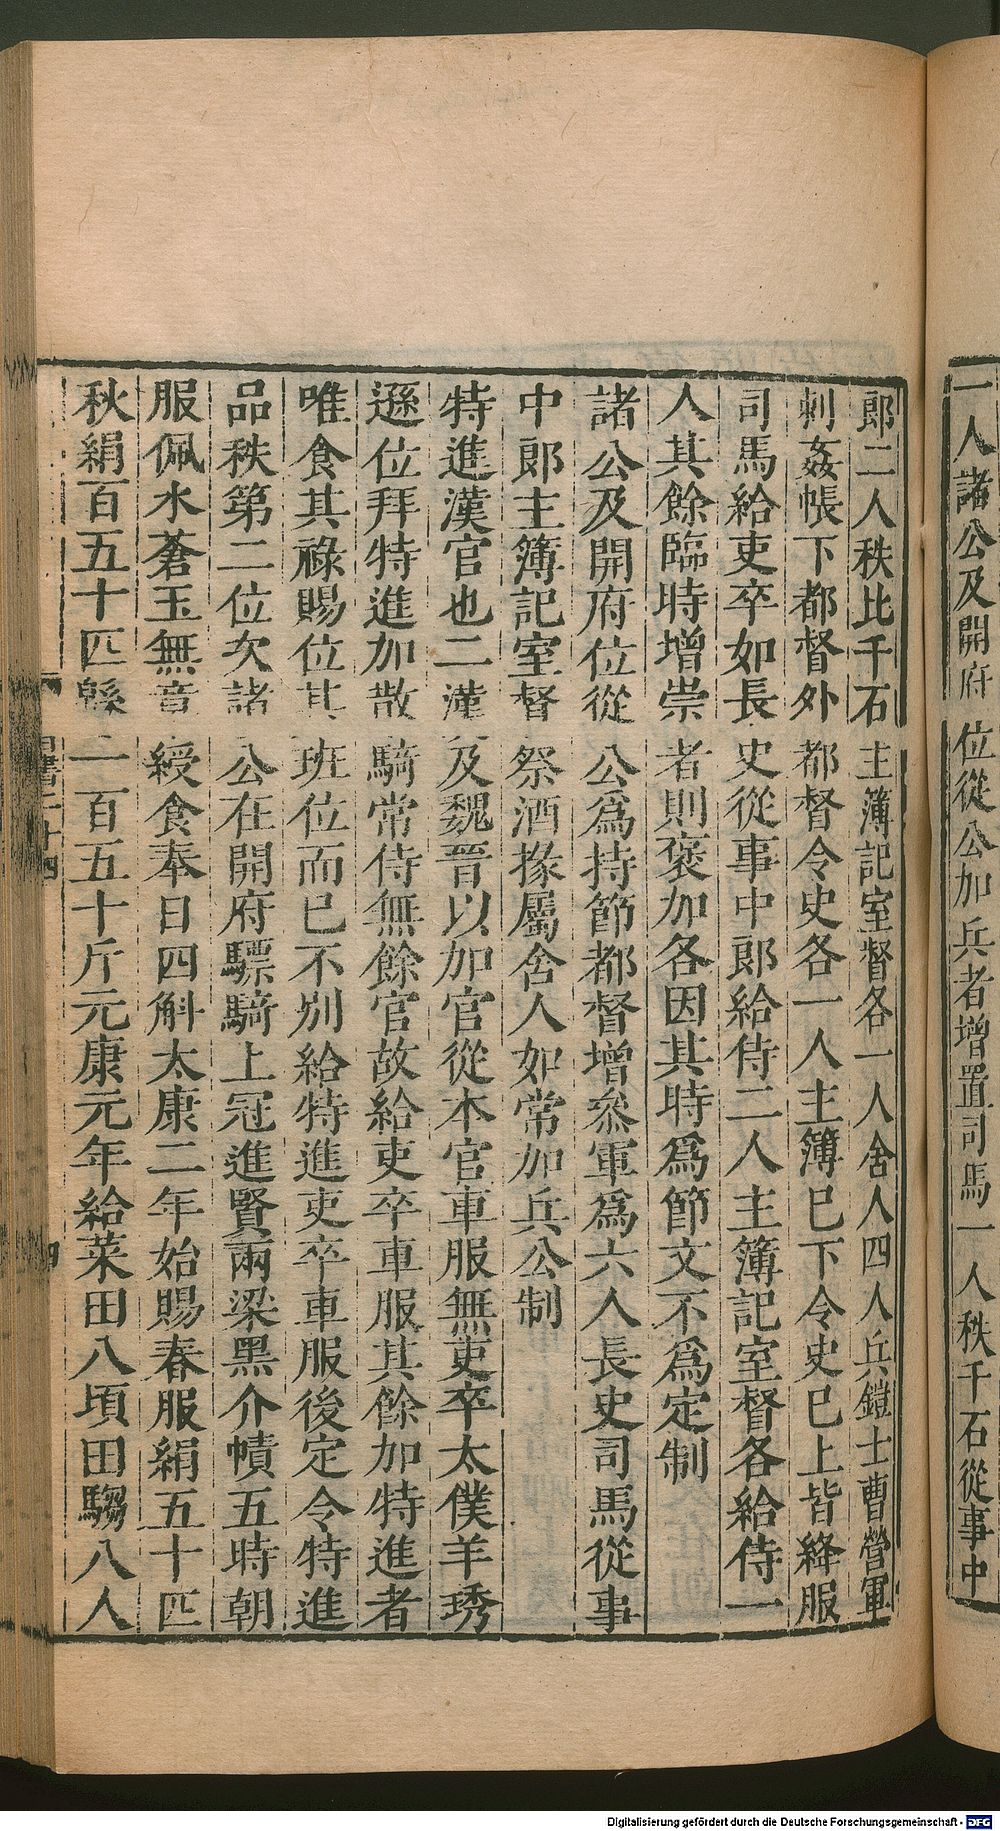 一人諸公及開府位從公加兵者增置司馬一人秩千石從事中
郎二人秩比千石主簿記室督各一人舍人四人兵鎧士曹營軍
刺姦帳下都督外都督令史各一人主簿已下令史已上皆絳服
司馬給吏卒如長史從事中郎給侍二人主簿記室督各給侍一
人其餘臨時增崇者則褒加各因其時爲節文不爲定制
諸公及開府位從公爲持節都督增叅軍爲六人長史司馬從事
中郎主簿記室督祭酒掾屬舍人如常加兵公制
特進漢官也二漢及魏晉以加官從本官車服無吏卒太僕羊琇
遜位拜特進加散騎常侍無餘官故給吏卒車服其餘加特進者
唯食其祿賜位其班位而已不別給特進吏卒車服後定令特進
品秩第二位次諸公在開府驃騎上冠進賢兩梁黑介幘五時朝
服佩水蒼玉無章綬食奉日四斛太康二年始賜春服絹五十匹
秋絹百五十匹緜一百五十斤元康元年給菜田八頃田騶八人
書二十四
四
Digitalisierung gefördert durch die Deutsche Forschungsgemeinschaft - DFG